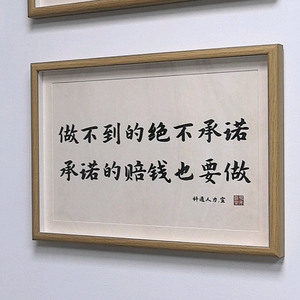 做不到的绝不承诺
承诺的赔钱也要做